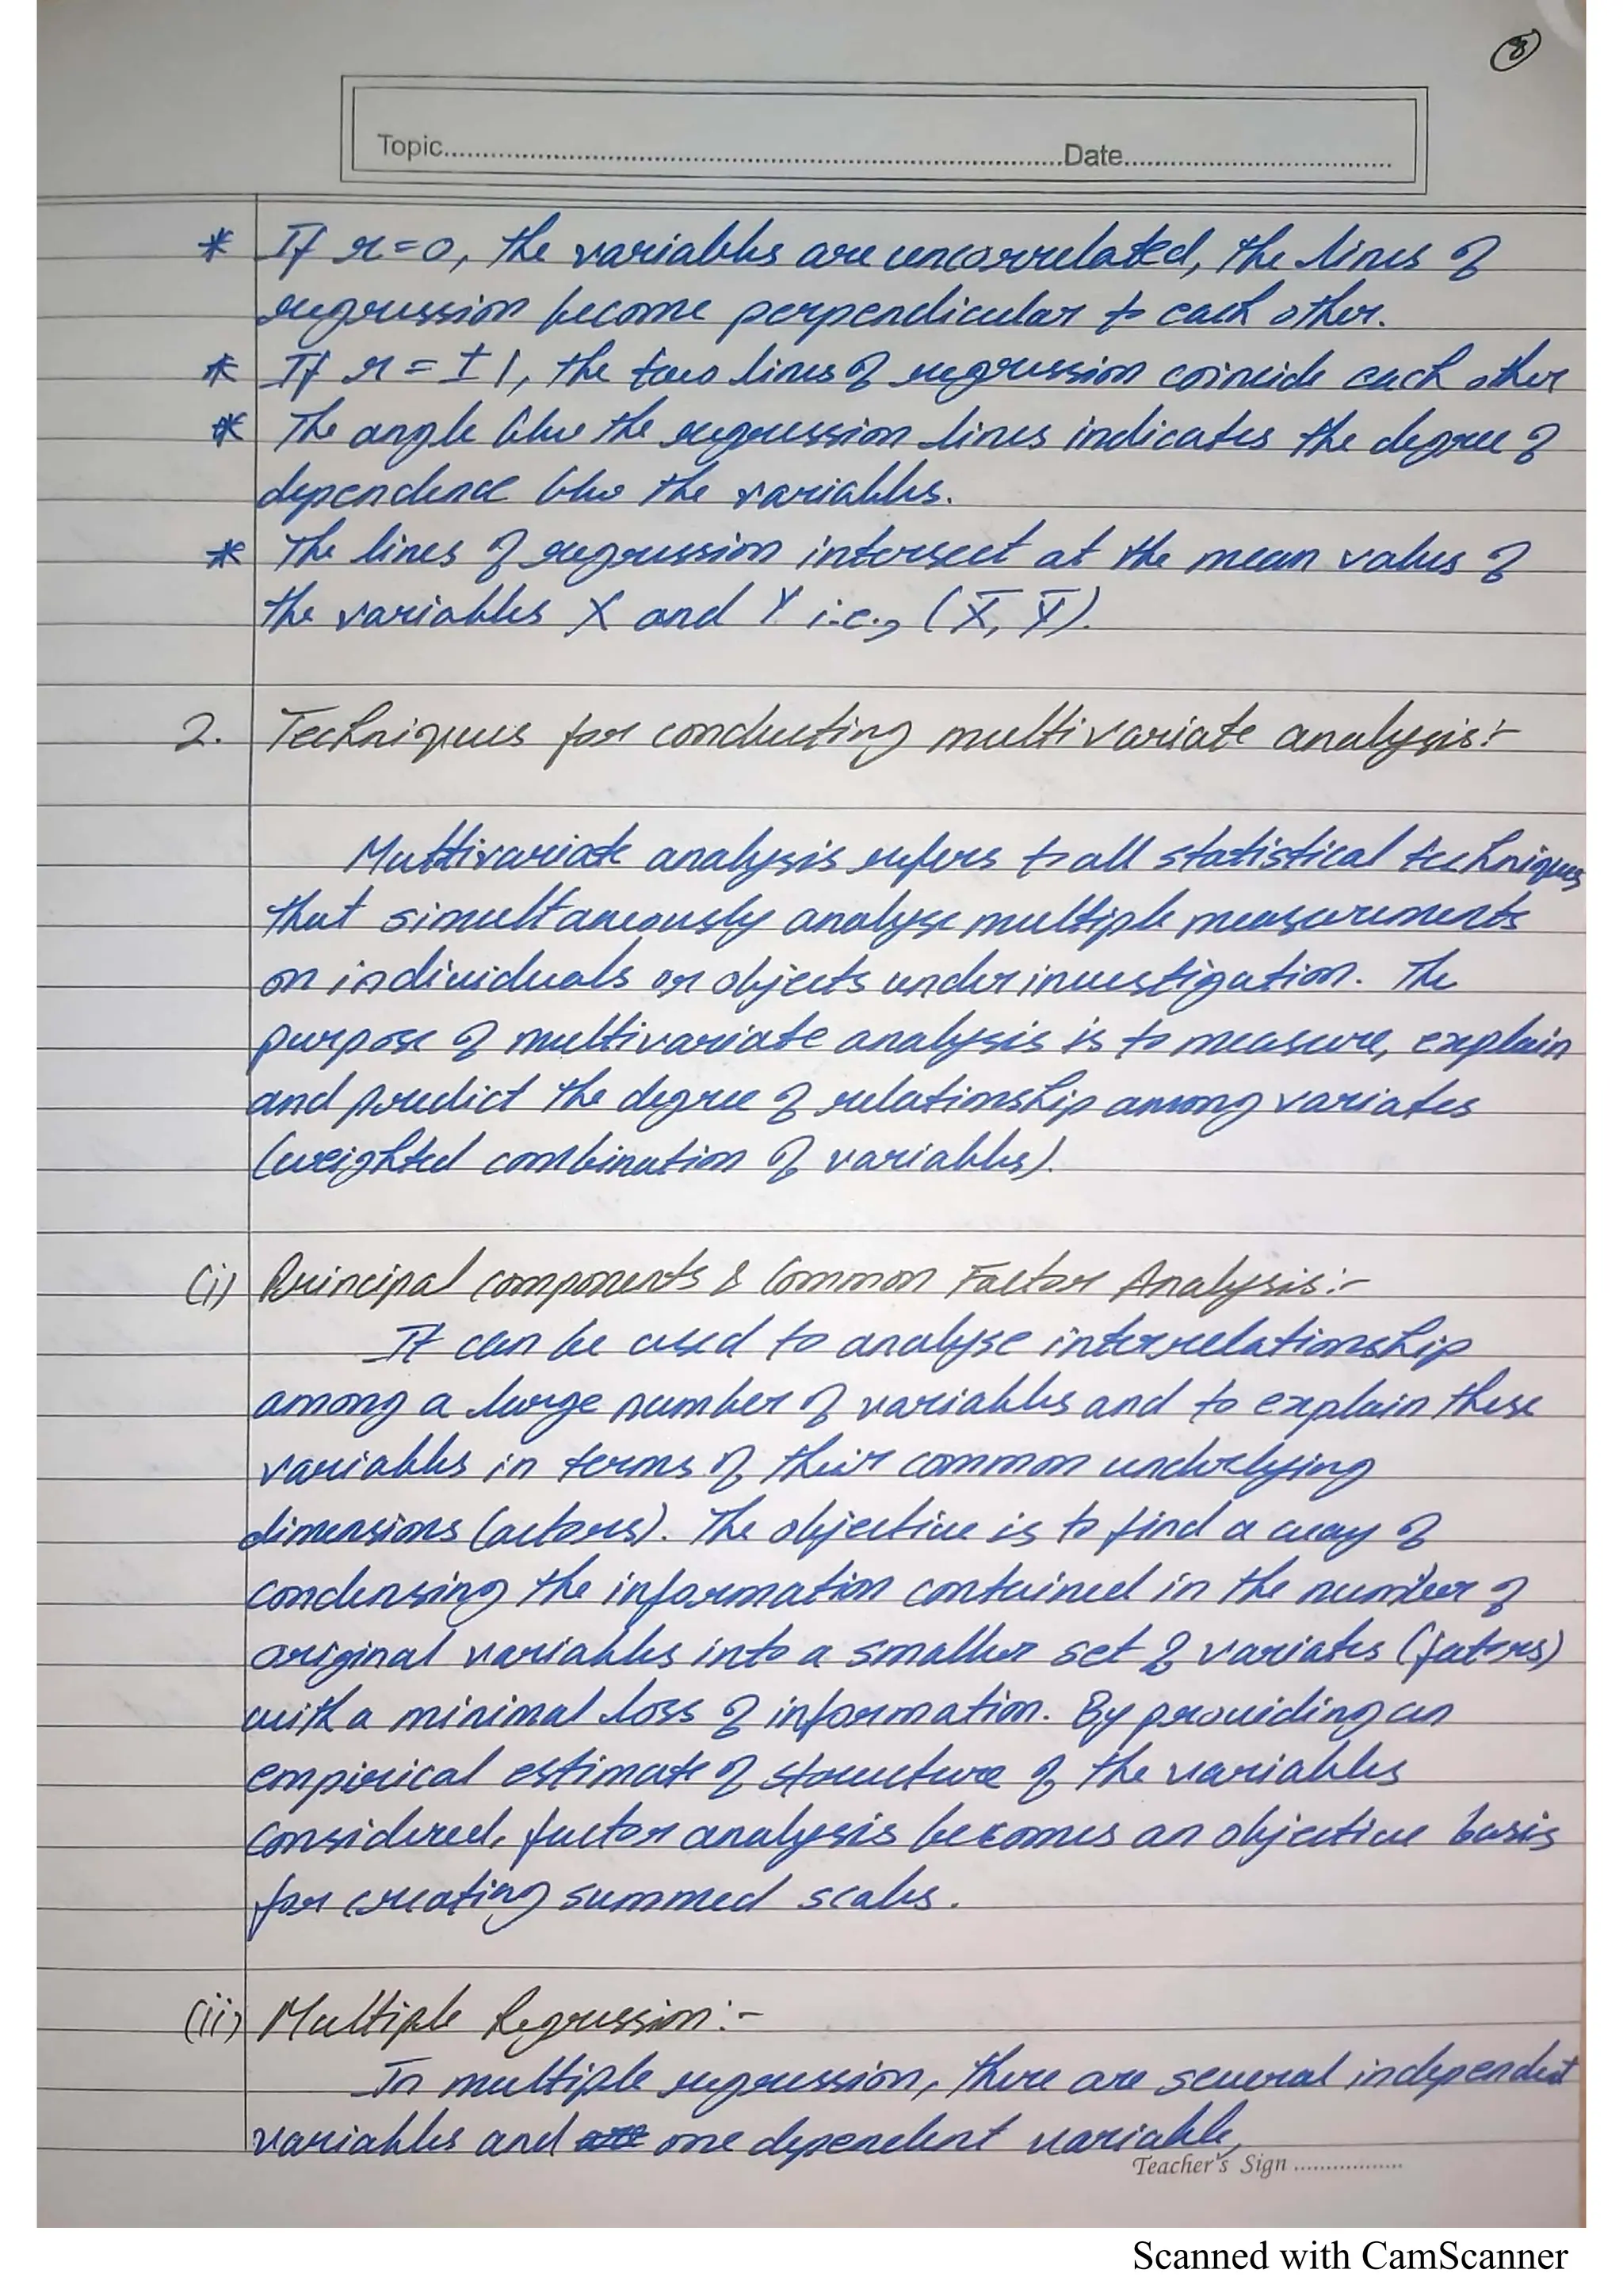 8
Topic..........Date..........
* If r=0, the variables are uncorrelated, the lines of
regression become perpendicular to each other.
* If r = ± 1, the two lines of regression coincide each other
* The angle b/w the regression lines indicates the degree of
dependence b/w the variables.
* The lines of regression intersect at the mean values of
the variables X and Y i.e., (X̅, Y̅).
2. Techniques for conducting multivariate analysis:-
Multivariate analysis refers to all statistical techniques
that simultaneously analyse multiple measurements
on individuals or objects under investigation. The
purpose of multivariate analysis is to measure, explain
and predict the degree of relationship among variates
(weighted combination of variables).
(i) Principal components & Common Factor Analysis:-
It can be used to analyse interrelationship
among a large number of variables and to explain these
variables in terms of their common underlying
dimensions (actors). The objective is to find a way of
condensing the information contained in the number of
original variables into a smaller set of variates (fators)
with a minimal loss of information. By providing an
empirical estimate of structure of the variables
considered, factor analysis becomes an objective basis
for creating summed scales.
(ii) Multiple Regression:-
In multiple regression, there are several independent
variables and one dependent variable,
Teacher's Sign ..........
Scanned with CamScanner